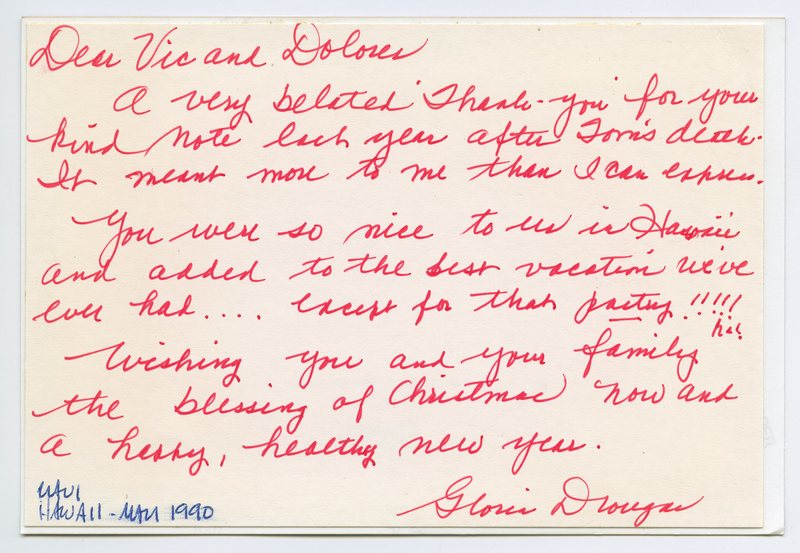 Dear Vic and Dolores
A very belated "Thank-you" for your
kind note last year after Tom's death.
It meant more to me than I can express.
You were so nice to us in Hawaii
and added to the best vacation we've
ever had.... except for that poetry!!!!!
ha!
Wishing you and your family
the blessing of Christmas now and
a happy, healthy new year.
Gloria Drougas
MAUI
HAWAII - MAY 1990